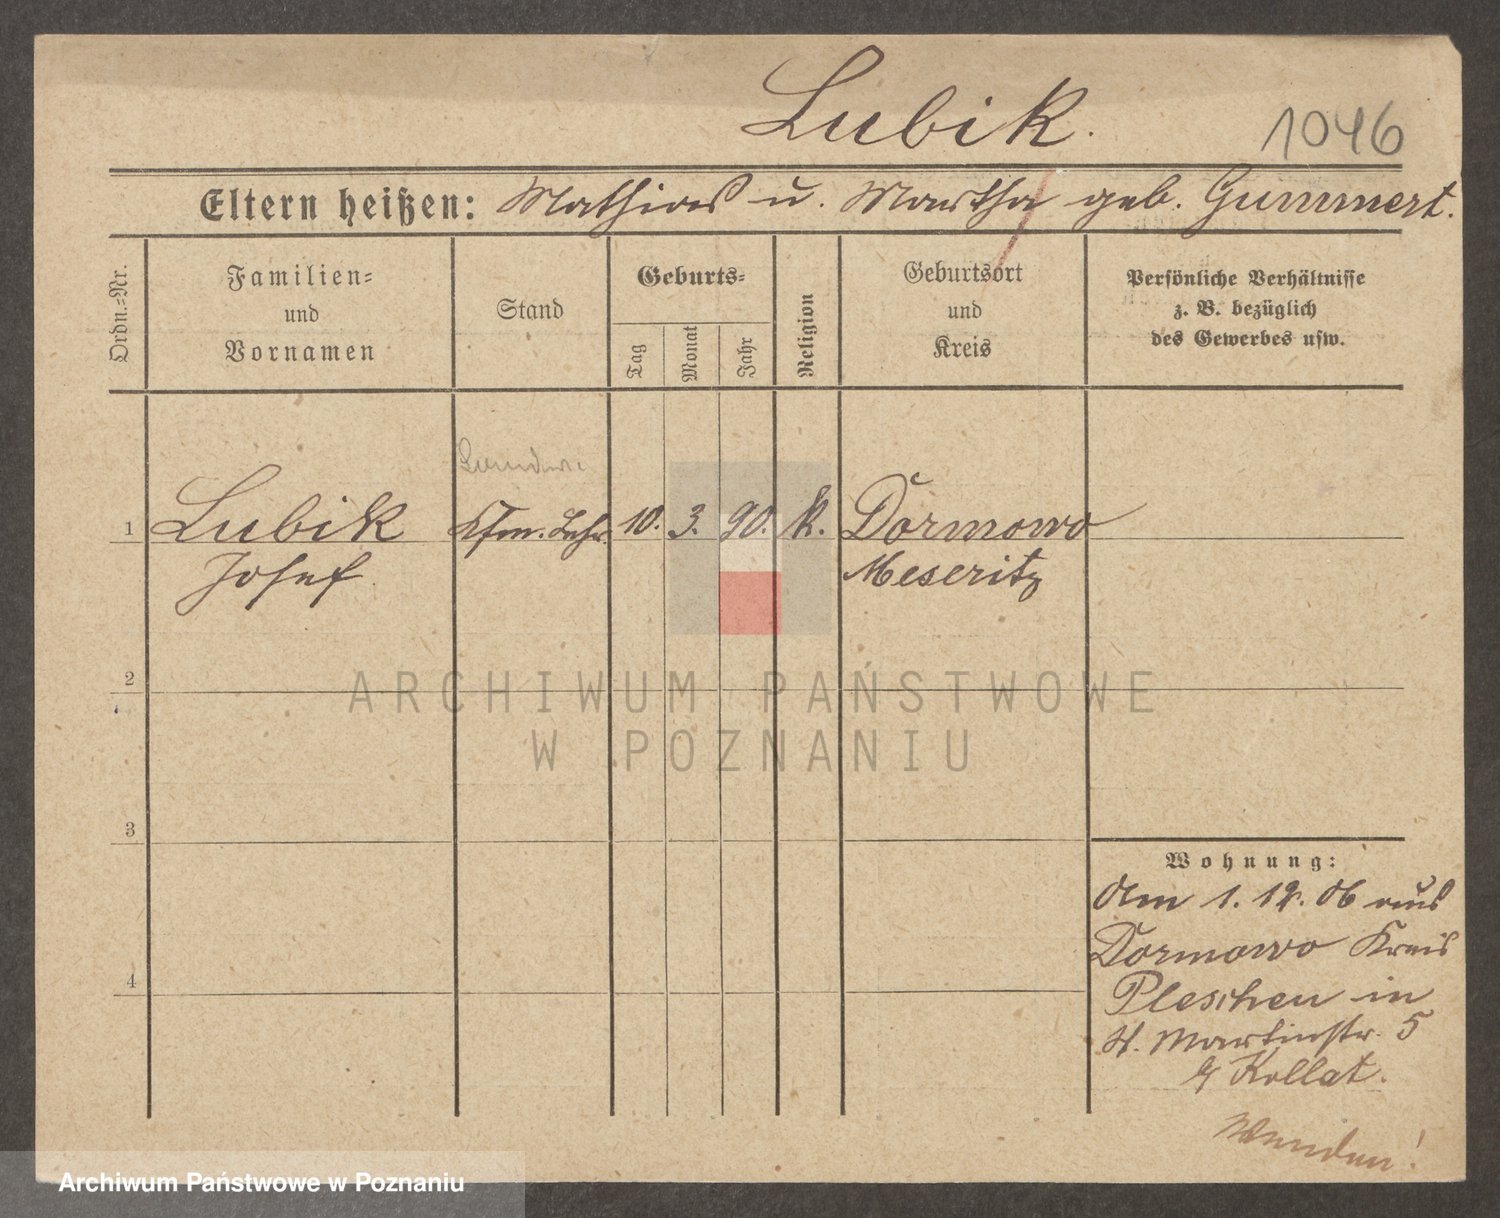 Lubik.
1046
Eltern heißen: Mathias u. Martha geb. Gummert.
Ordn.-Nr.
Familien-
und
Vornamen
Stand
Geburts-
Tag
Monat
Jahr
Religion
Geburtsort
und
Kreis
Persönliche Verhältnisse
z. B. bezüglich
des Gewerbes usw.
1
Lubik
Josef
Kfm. Lehr.
10.
3.
90.
k.
Dormowo
Meseritz
2
3
4
ARCHIWUM PAŃSTWOWE
W POZNANIU
Wohnung:
Am 1. 12. 06 aus
Dormowo Kreis
Pleschen in
St. Martinstr. 5
Kollat.
Wenden!
Archiwum Państwowe w Poznaniu